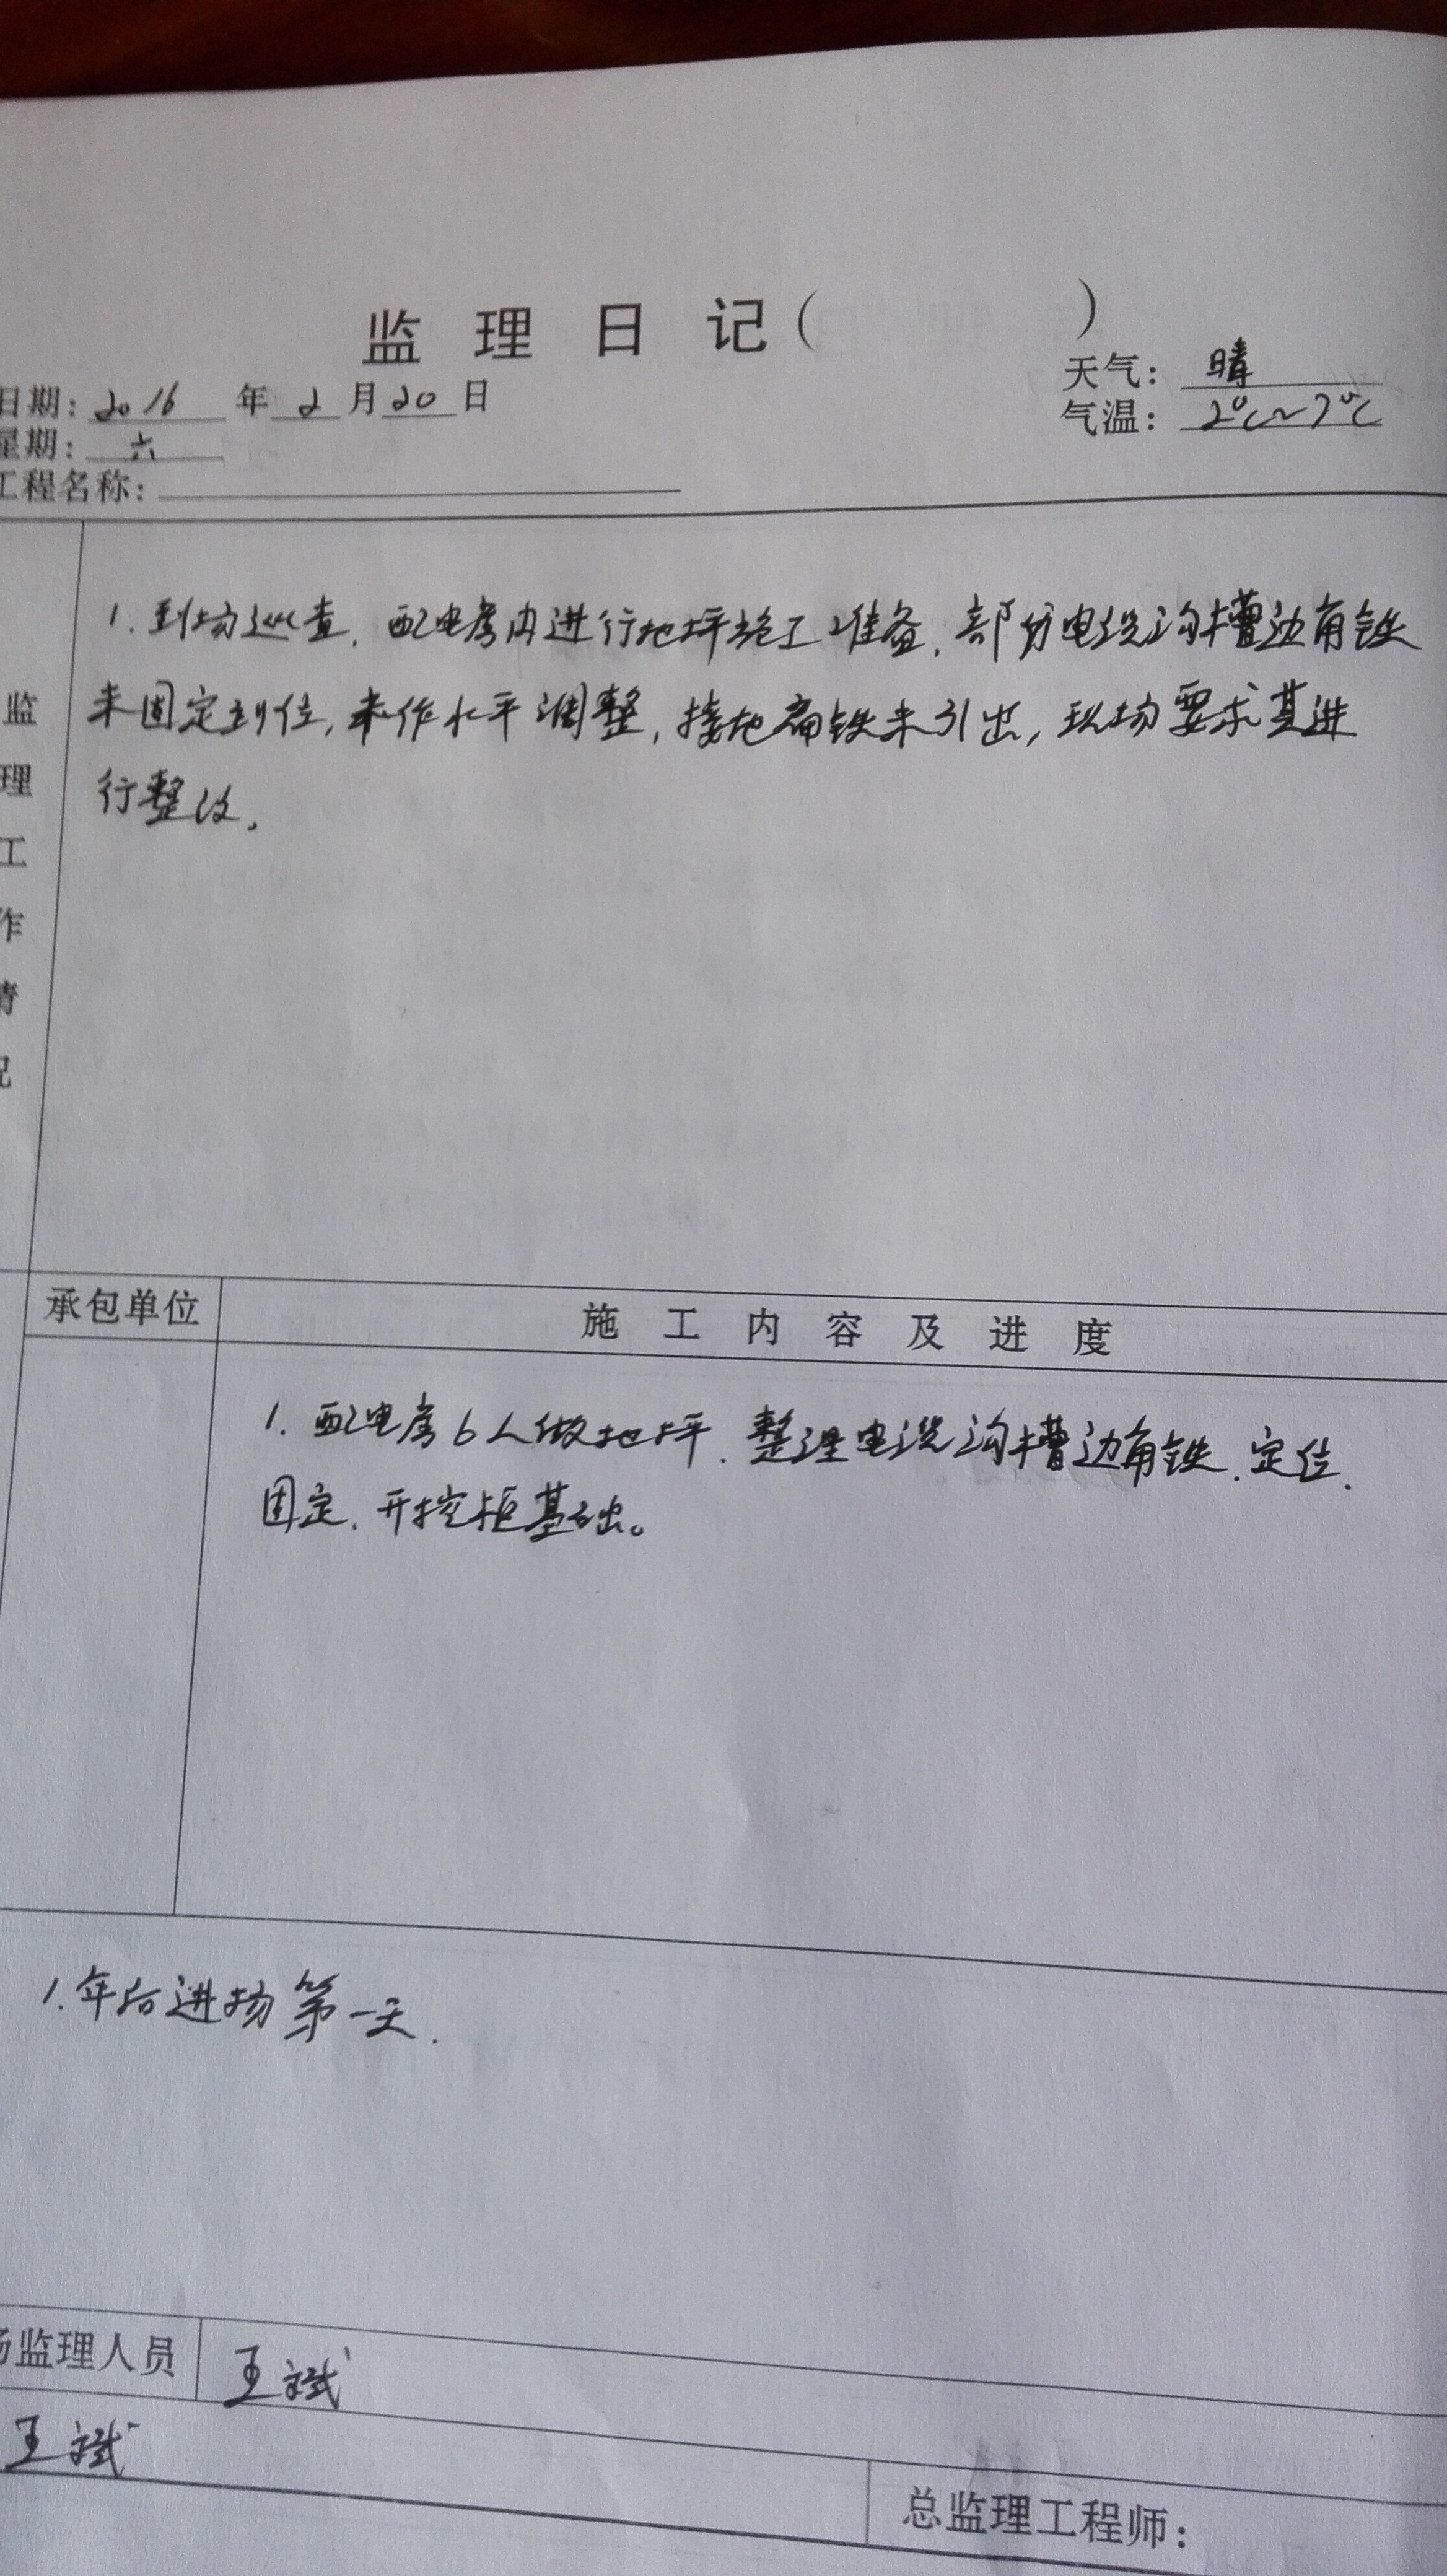 监理日记（ ）
日期：2016年2月20日
天气：晴
星期：六
气温：2℃～7℃
工程名称：
监理工作情况
1. 到场巡查，配电房内进行地坪施工准备，部份电缆沟槽边角铁
未固定到位，未作水平调整，接地扁铁未引出，现场要求其进
行整改。
承包单位
施工内容及进度
1. 配电房6人做地坪，整理电缆沟槽边角铁，定位，
固定，开挖柜基础。
1. 年后进场第一天.
场监理人员
王斌
王斌
总监理工程师：